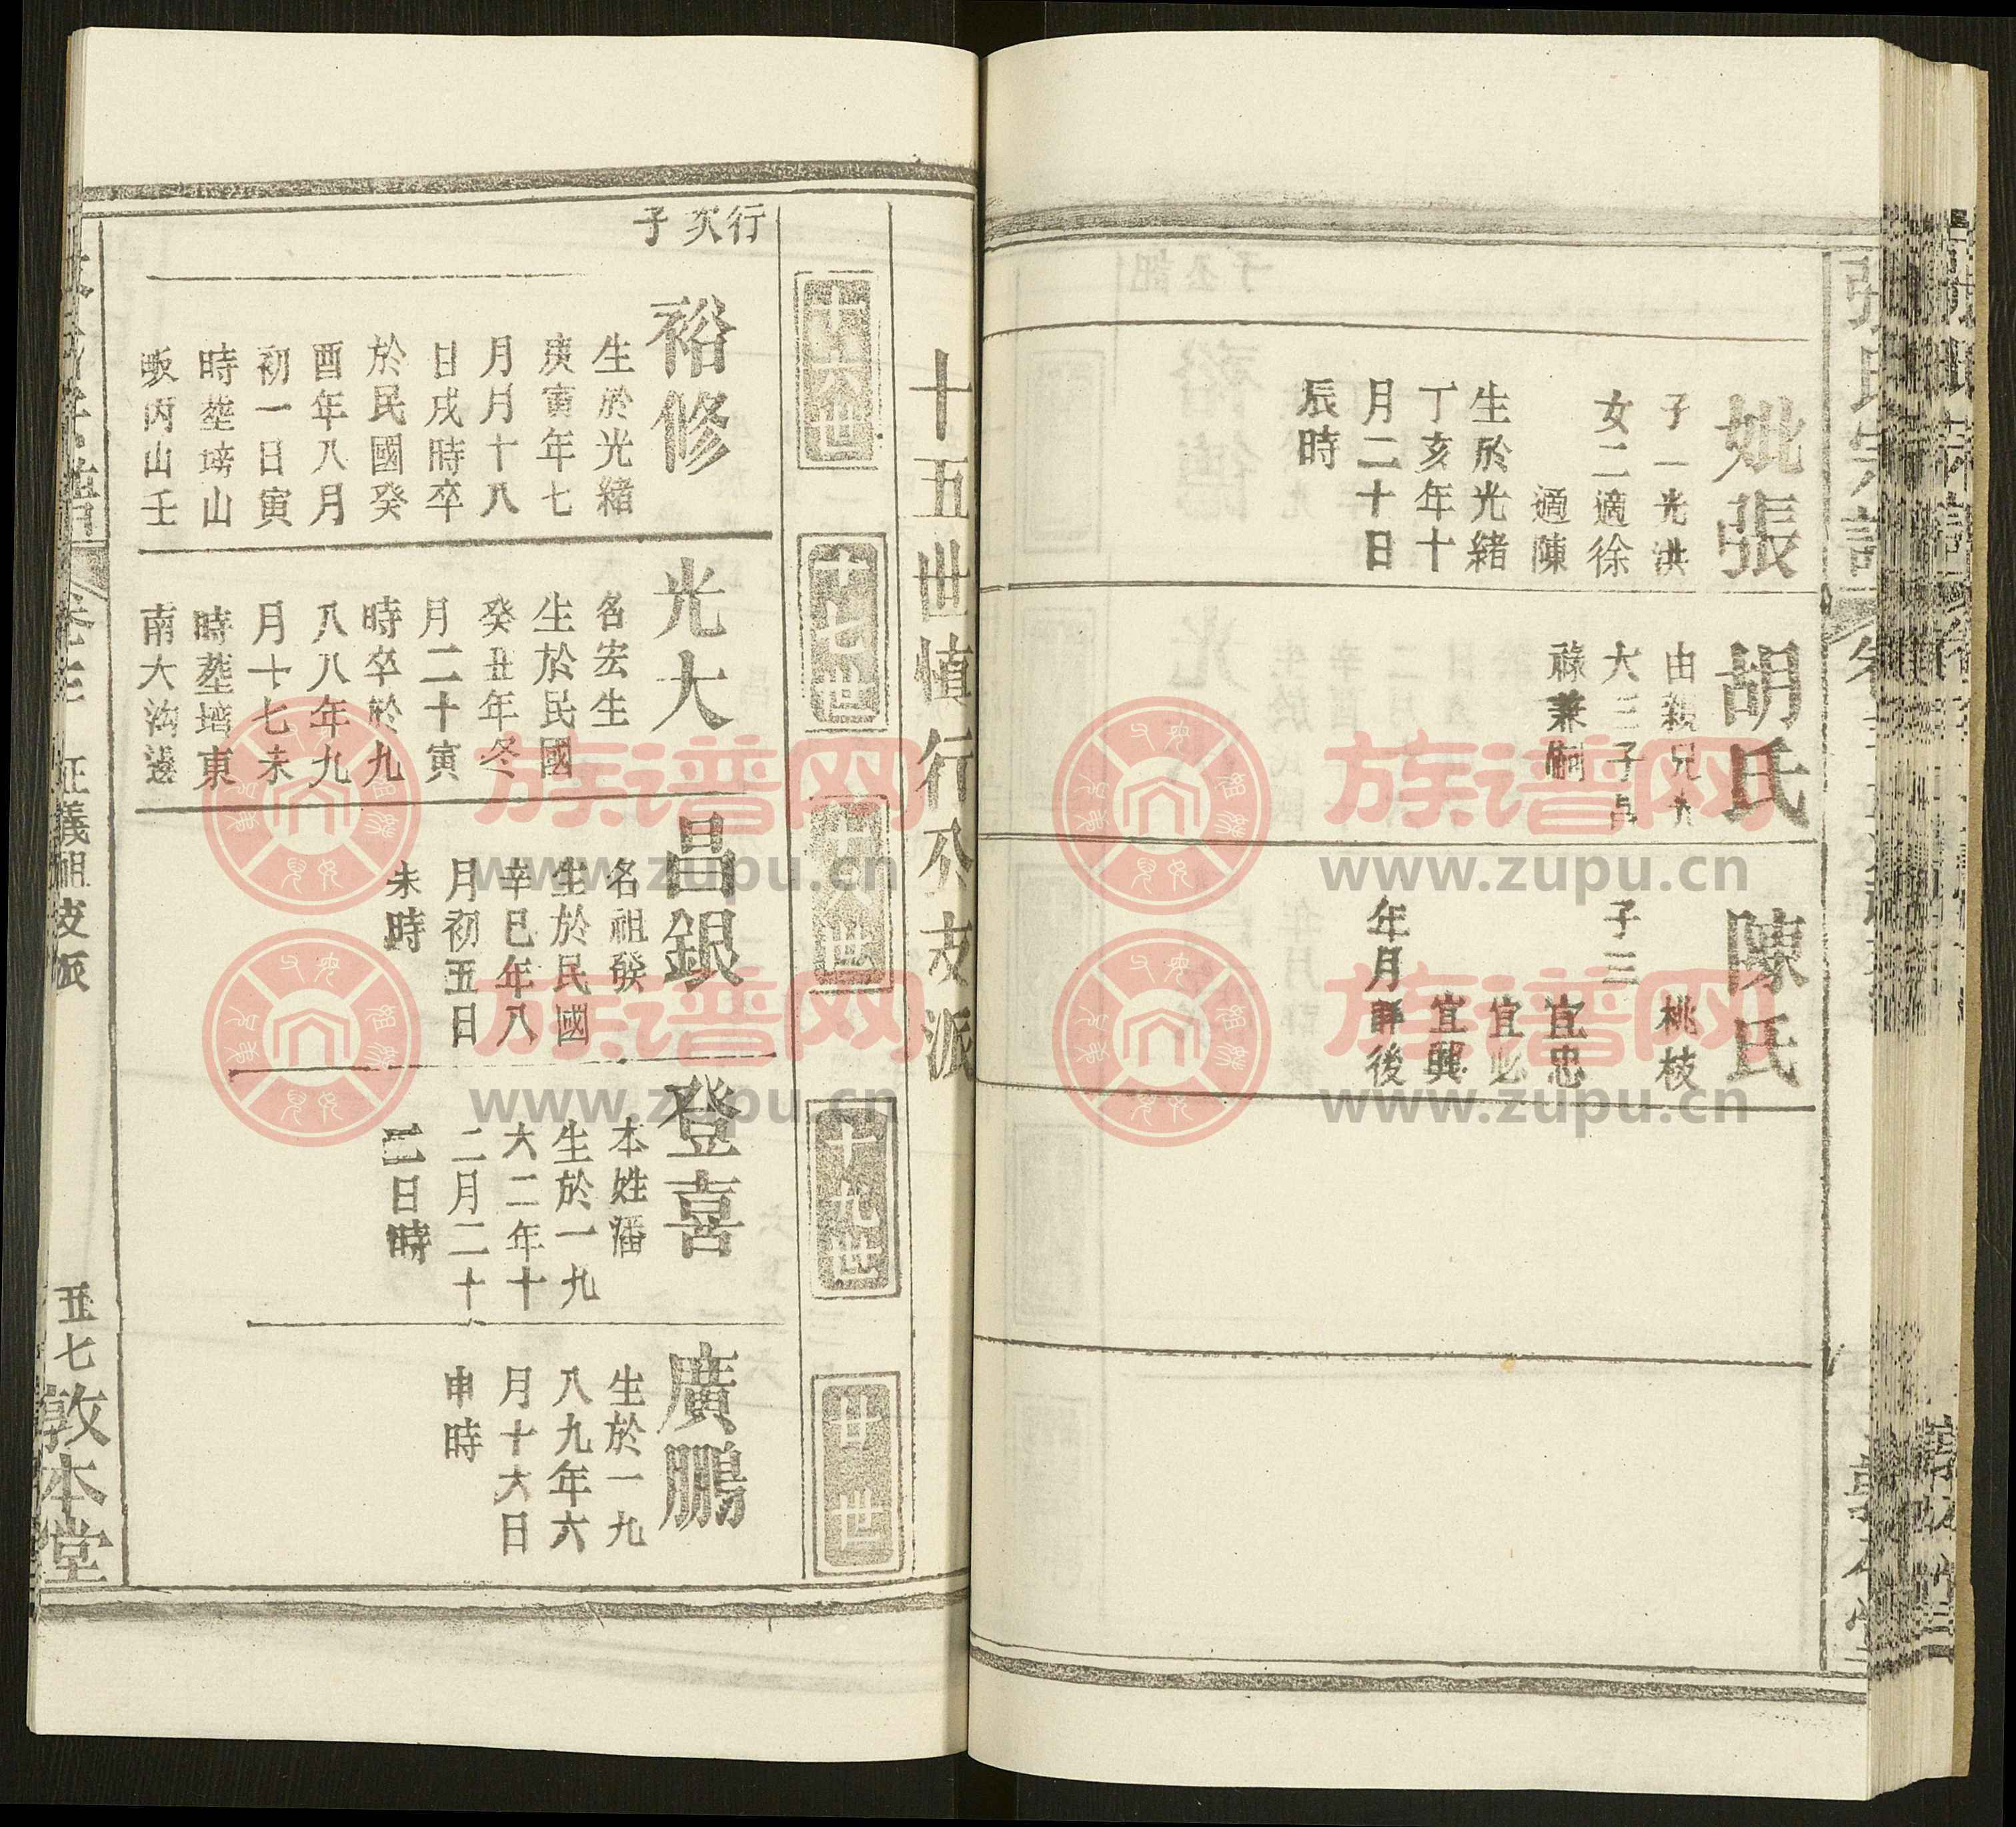 張氏宗譜
妣張
子一光洪
女二適徐
適陳
生於光緒
丁亥年十
月二十日
辰時
胡氏
由親兄大
大三子
祿兼嗣
陳氏
桃枝
子三
宜忠
宜必
宜興
年月詳後
敦本堂
十五世慎行公支派
十六世
十七世
十八世
十九世
廿世
行次子
裕修
生於光緒
庚寅年七
月月十八
日戌時卒
於民國癸
酉年八月
初一日寅
時塟塝山
畈丙山壬
光大
名宏生
生於民國
癸丑年冬
月二十寅
時卒於九
八八年九
月十七未
時塟塆東
南大溝邊
昌銀
名祖發
生於民國
辛巳年八
月初五日
未時
登喜
本姓潘
生於一九
六二年十
二月二十
三日時
廣鵬
生於一九
八九年六
月十六日
申時
正義祖皮派
五七
敦本堂
族谱网
www.zupu.cn
族谱网
www.zupu.cn
族谱网
www.zupu.cn
族谱网
www.zupu.cn